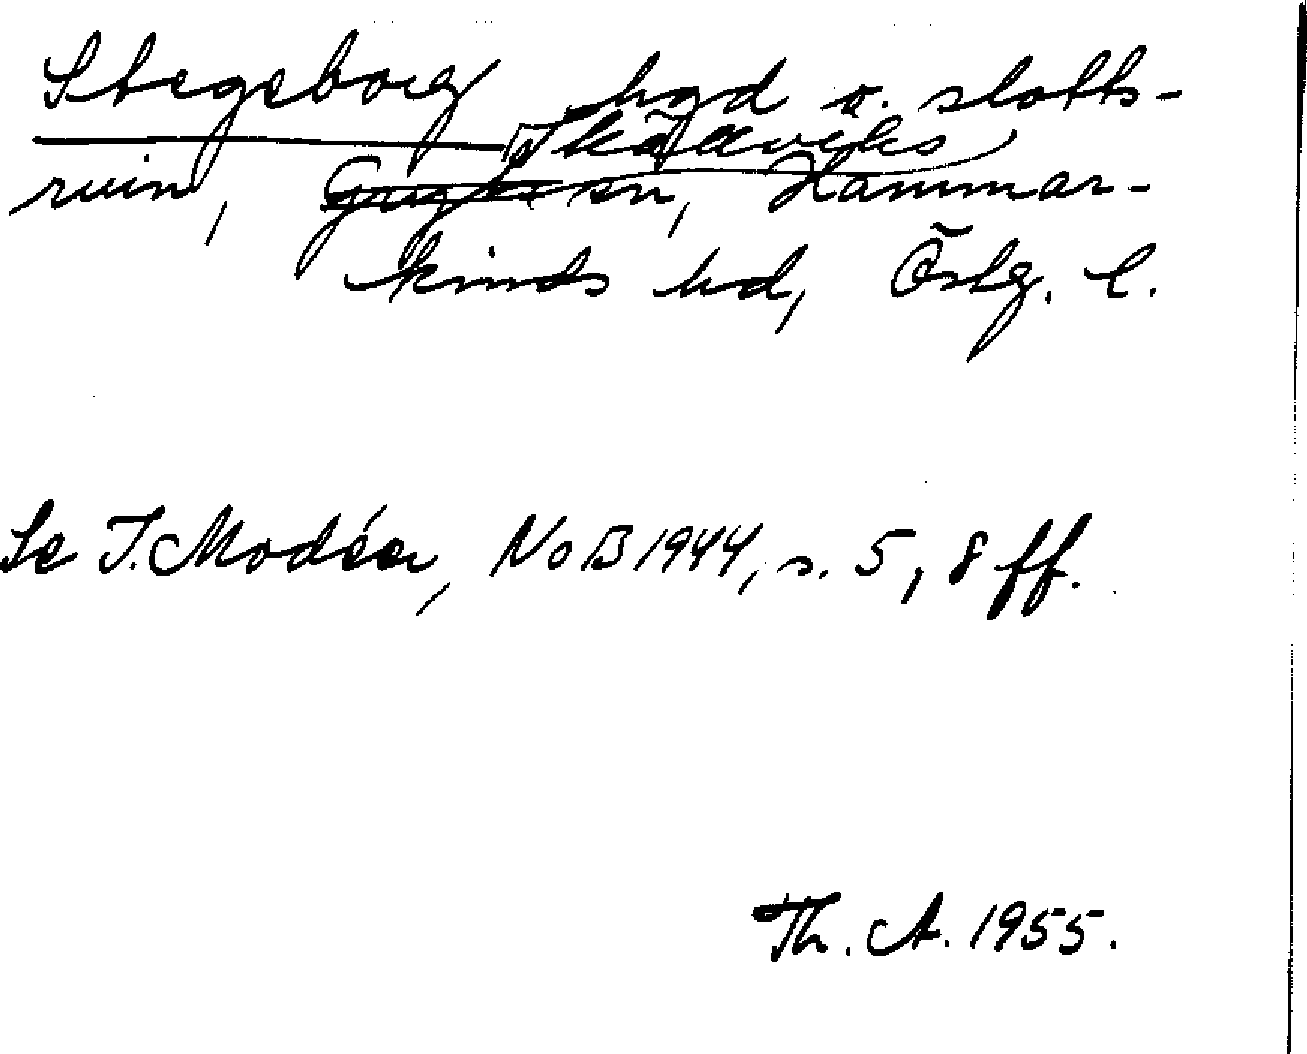 Stegeborg hgd o. slotts-
Skällviks
ruin, sn, Hammar-
kinds hd, Östg. l.
Se I. Modéer, NoB 1944, s. 5, 8 ff.
Th. A. 1955.